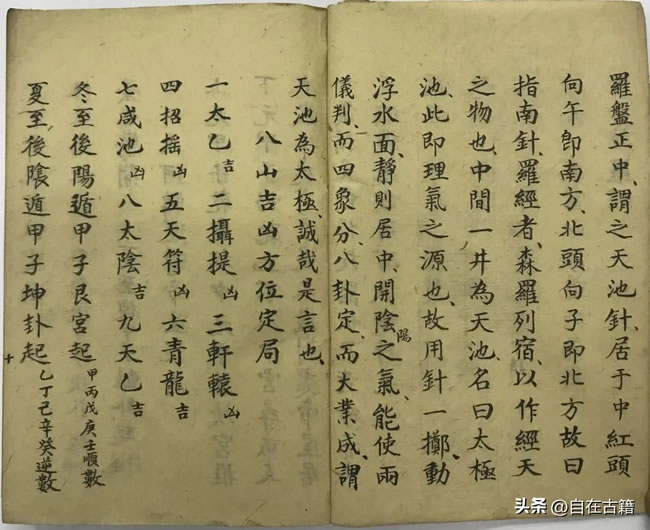 羅盤正中、謂之天池、針居于中、紅頭
向午、即南方、北頭向子、即北方、故曰
指南針、羅經者、森羅列宿、以作經天
之物也、中間一井為天池、名曰太極
池、此即理氣之源也、故用針一擲、動
浮水面、靜則居中、開陰陽之氣、能使兩
儀判、而四象分、八卦定、而大業成、謂
天池為太極、誠哉是言也、
八山吉凶方位定局
一太乙吉 二攝提凶 三軒轅凶
四招搖凶 五天符凶 六青龍吉
七咸池凶 八太陰吉 九天乙吉
冬至後陽遁甲子艮宮起 甲丙戊庚壬順數
夏至後陰遁甲子坤卦起 乙丁己辛癸逆數
头条 @自在古籍